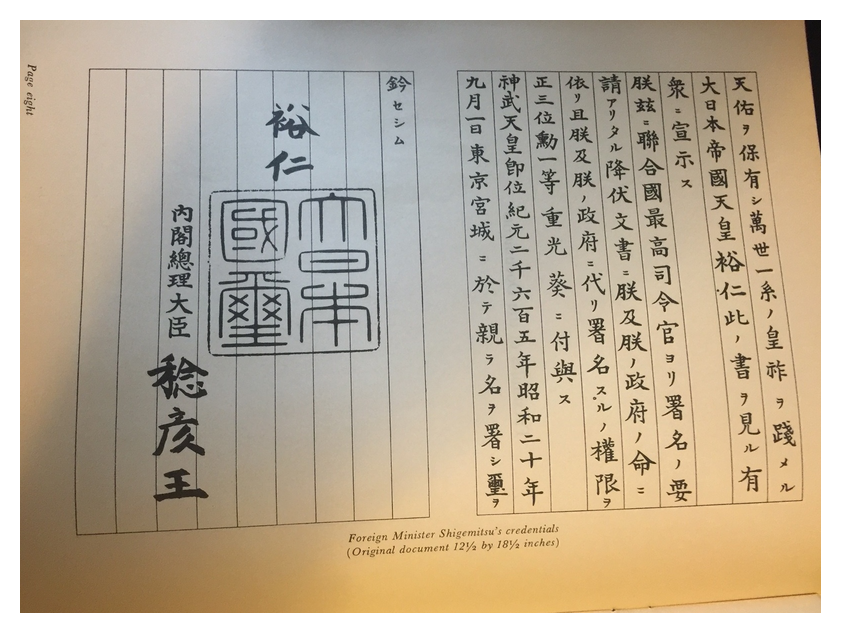 天佑ヲ保有シ萬世一系ノ皇祚ヲ踐メル
大日本帝國天皇裕仁此ノ書ヲ見ル有
衆ニ宣示ス
朕玆ニ聯合國最高司令官ヨリ署名ノ要
請アリタル降伏文書ニ朕及朕ノ政府ノ命ニ
依リ且朕及朕ノ政府ニ代リ署名スルノ權限ヲ
正三位勳一等重光葵ニ付與ス
神武天皇卽位紀元二千六百五年昭和二十年
九月一日東京宮城ニ於テ親ラ名ヲ署シ璽ヲ
鈐セシム
裕仁
大日本
國璽
内閣總理大臣 稔彦王
Foreign Minister Shigemitsu's credentials
(Original document 12½ by 18½ inches)
Page eight